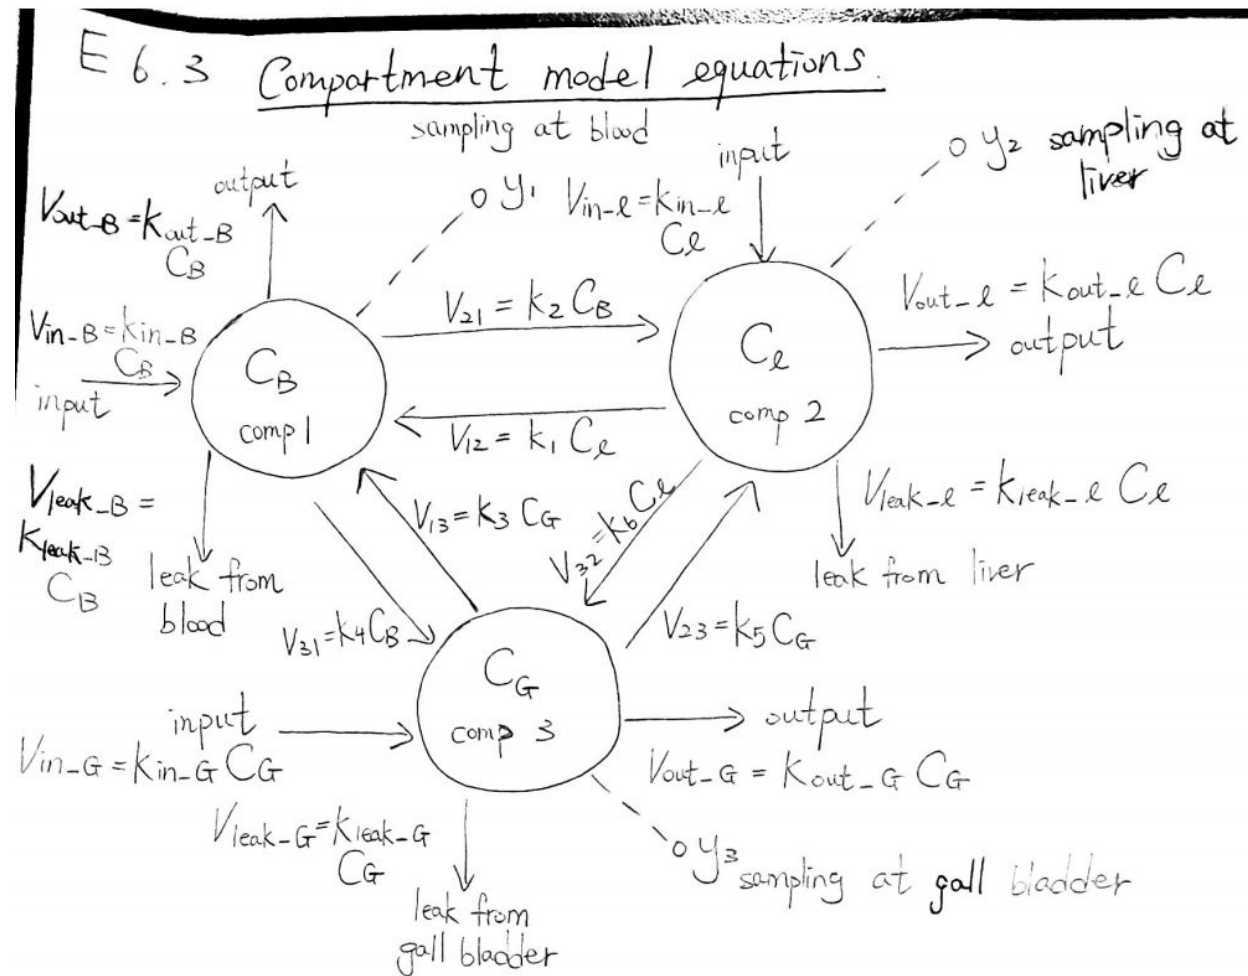 E 6.3 Compartment model equations.
sampling at blood
output
Vout-B = Kout-B
CB
y1
input
Vin-l = Kin-l
Cl
y2 sampling at
liver
Vin-B = kin-B
CB
input
CB
comp 1
V21 = k2 CB
V12 = k1 Cl
Cl
comp 2
Vout-l = Kout-l Cl
output
Vleak-B =
Kleak-B
CB
leak from
blood
V13 = k3 CG
V31 = k4 CB
V32 = k6 Cl
V23 = k5 CG
Vleak-l = Kleak-l Cl
leak from liver
CG
comp 3
input
Vin-G = Kin-G CG
output
Vout-G = Kout-G CG
Vleak-G = Kleak-G
CG
leak from
gall bladder
y3 sampling at gall bladder